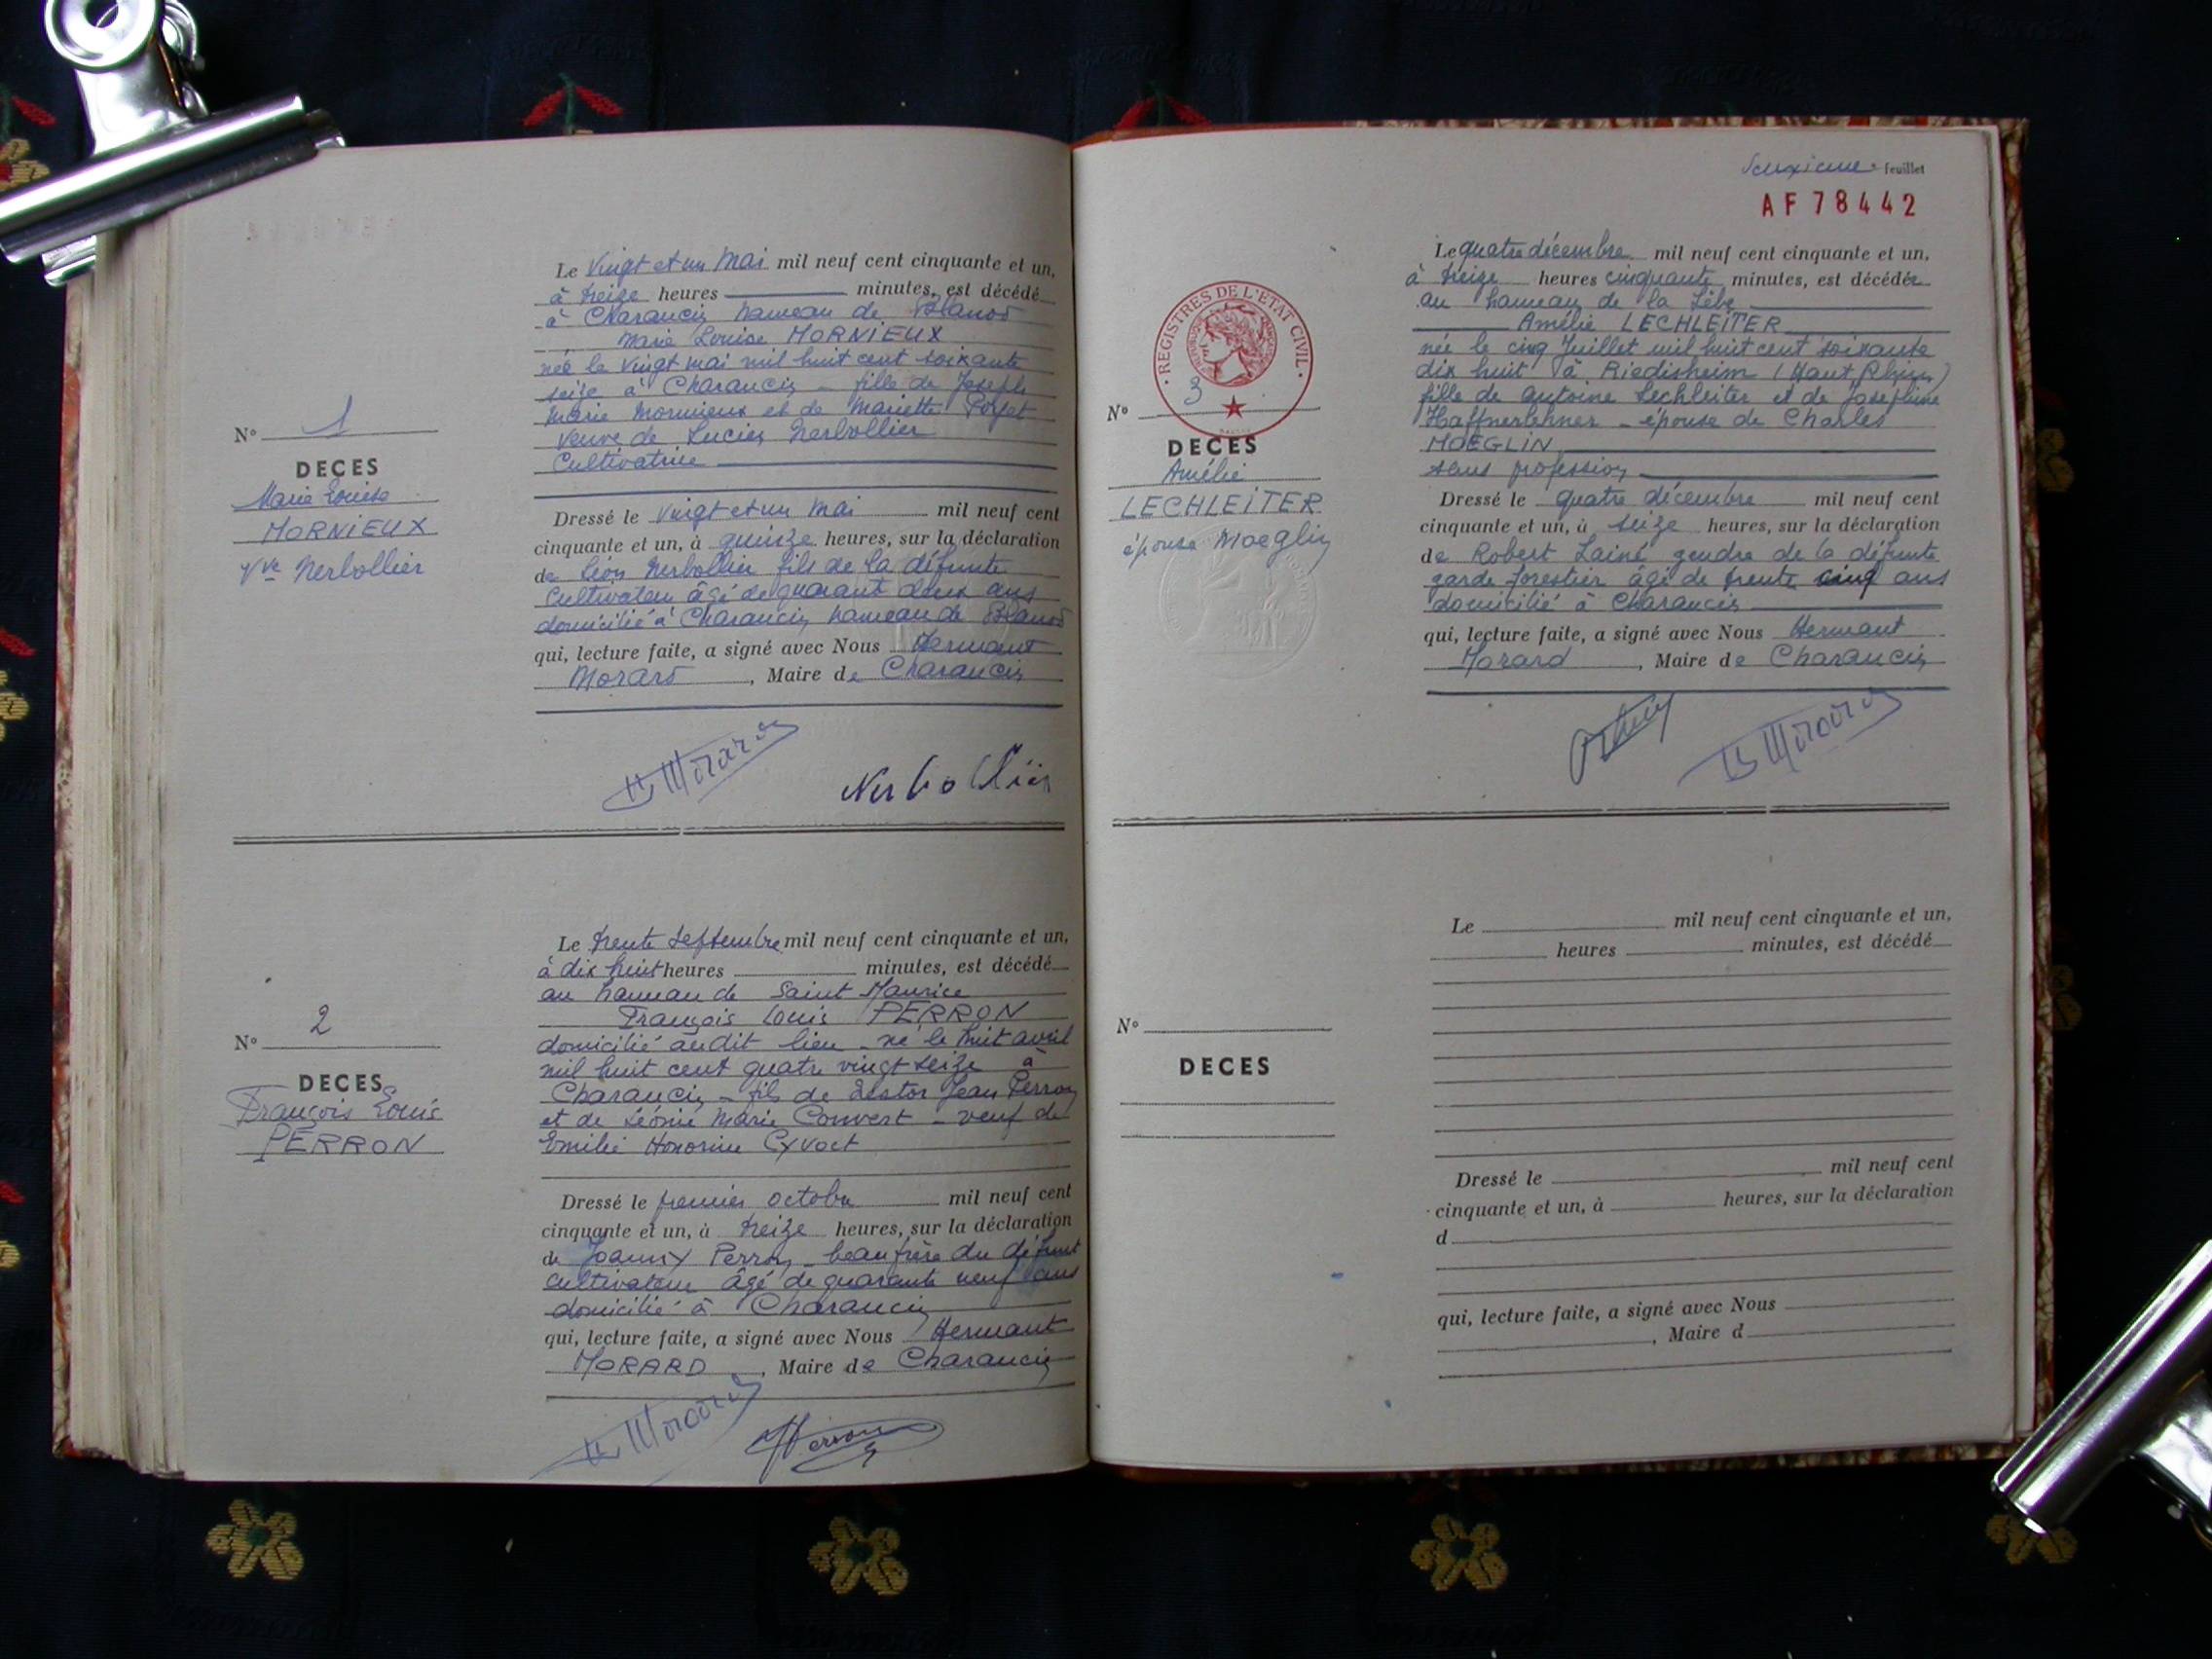 N° 1
DECES
Marie Louise
MORNIEUX
Vve Nerbollier
Le Vingt et un Mai mil neuf cent cinquante et un,
à treize heures minutes, est décédé
à Charancin hameau de Blanod
Marie Louise MORNIEUX
née le vingt mai mil huit cent soixante
seize à Charancin - fille de Joseph
Marie Mornieux et de Mariette
Veuve de Lucien Nerbollier
Cultivatrice
Dressé le vingt et un Mai mil neuf cent
cinquante et un, à quinze heures, sur la déclaration
de Léon Nerbollier fils de la défunte
Cultivateur âgé de quarant deux ans
domicilié à Charancin hameau de Blanod
qui, lecture faite, a signé avec Nous Hermant
Morard, Maire de Charancin
H Morard
Nerbollier
N° 2
DECES
François Louis
PERRON
Le trente Septembre mil neuf cent cinquante et un,
à dix huit heures minutes, est décédé
au hameau de Saint Maurice
François Louis PERRON
domicilié audit lieu - né le huit avril
mil huit cent quatre vingt seize à
Charancin - fils de Nestor Jean Perron
et de Léonie Marie Convert - veuf de
Emilie Honorine Cyvoct
Dressé le premier octobre mil neuf cent
cinquante et un, à treize heures, sur la déclaration
de Joanny Perron - beau frère du défunt
cultivateur âgé de quarante neuf ans
domicilié à Charancin
qui, lecture faite, a signé avec Nous Hermant
MORARD, Maire de Charancin
H Morard
Perron
Deuxième feuillet
AF 78442
REGISTRES DE L'ETAT CIVIL
N° 3
DECES
Amélie
LECHLEITER
épouse Moeglin
Le quatre décembre mil neuf cent cinquante et un,
à treize heures cinquante minutes, est décédée
au hameau de la Lèbe
Amélie LECHLEITER
née le cinq Juillet mil huit cent soixante
dix huit à Riedisheim (Haut Rhin)
fille de Antoine Lechleiter et de Joséphine
Haffnerlehner - épouse de Charles
MOEGLIN
sans profession
Dressé le quatre décembre mil neuf cent
cinquante et un, à seize heures, sur la déclaration
de Robert Lainé gendre de la défunte
garde forestier âgé de trente cinq ans
domicilié à Charancin
qui, lecture faite, a signé avec Nous Hermant
Morard, Maire de Charancin
H Morard
N°
DECES
Le mil neuf cent cinquante et un,
heures minutes, est décédé
Dressé le mil neuf cent
cinquante et un, à heures, sur la déclaration
d
qui, lecture faite, a signé avec Nous
, Maire d